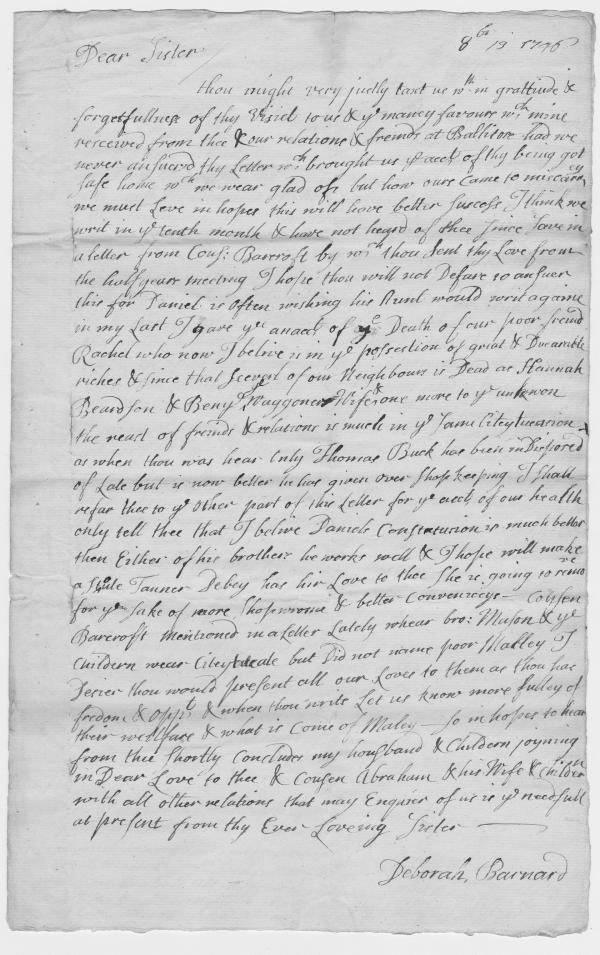 Dear Sister 8br 13 1746
thou might very justly taxt us wth in gratitude &
forgetfullness of thy Visid to us & ye maney favours wch mine
received from thee & our relations & freinds at Ballitore had we
never answerd thy Letter wch brought us ye acct of thy being got
safe home wch we wear glad of but how ours Came to miscarry
we must Leve in hopes this will have better success I think we
writ in ye tenth month & have not heard of thee since save in
a letter from Cous: Barcroft by wch thou sent thy Love from
the half years meeting I hope thou will not Defare to answer
this for Daniel is often wishing his Aunt would writ againe
in my Last I gave yu anacct of ye Death of our poor freind
Rachel who now I belive is in ye possection of griat & Durarable
riches & since that severl of our Neighbours is Dead as Hannah
Beardson & Benj Waggoners Wife & one more to ye unknown
the reast of freinds & relations is much in ye same Citeytueasion
as when thou was hear only Thomas Buck has been in Disposed
of Late but is now better he has given over shopkeeping I shall
refar thee to ye other part of this Letter for ye acct of our health
only tell thee that I belive Daniels Constatusion is much better
then Either of his brothers he works well & I hope will make
a Tanner Debey has hir Love to thee she is going to remo
for ye sake of more shoproome & better Conveniecys — Cousen
Barcroft mentioned in a Letter Lately whear bro: Mason & ye
Childern wear but Did not name poor Malley I
Desier thou would present all our Loves to them as thou has
fredom & oppt & when thou writs Let us know more fulley of
their wellfare & what is Come of Maley — so in hopes to hear
from thee shortly Concludes my housband & Childern joyning
in Dear Love to thee & Cousen Abraham & his Wife & Childern
with all other relations that may Enquier of us is ye needfull
at present from thy Ever Loveing Sister —
Deborah Barnard